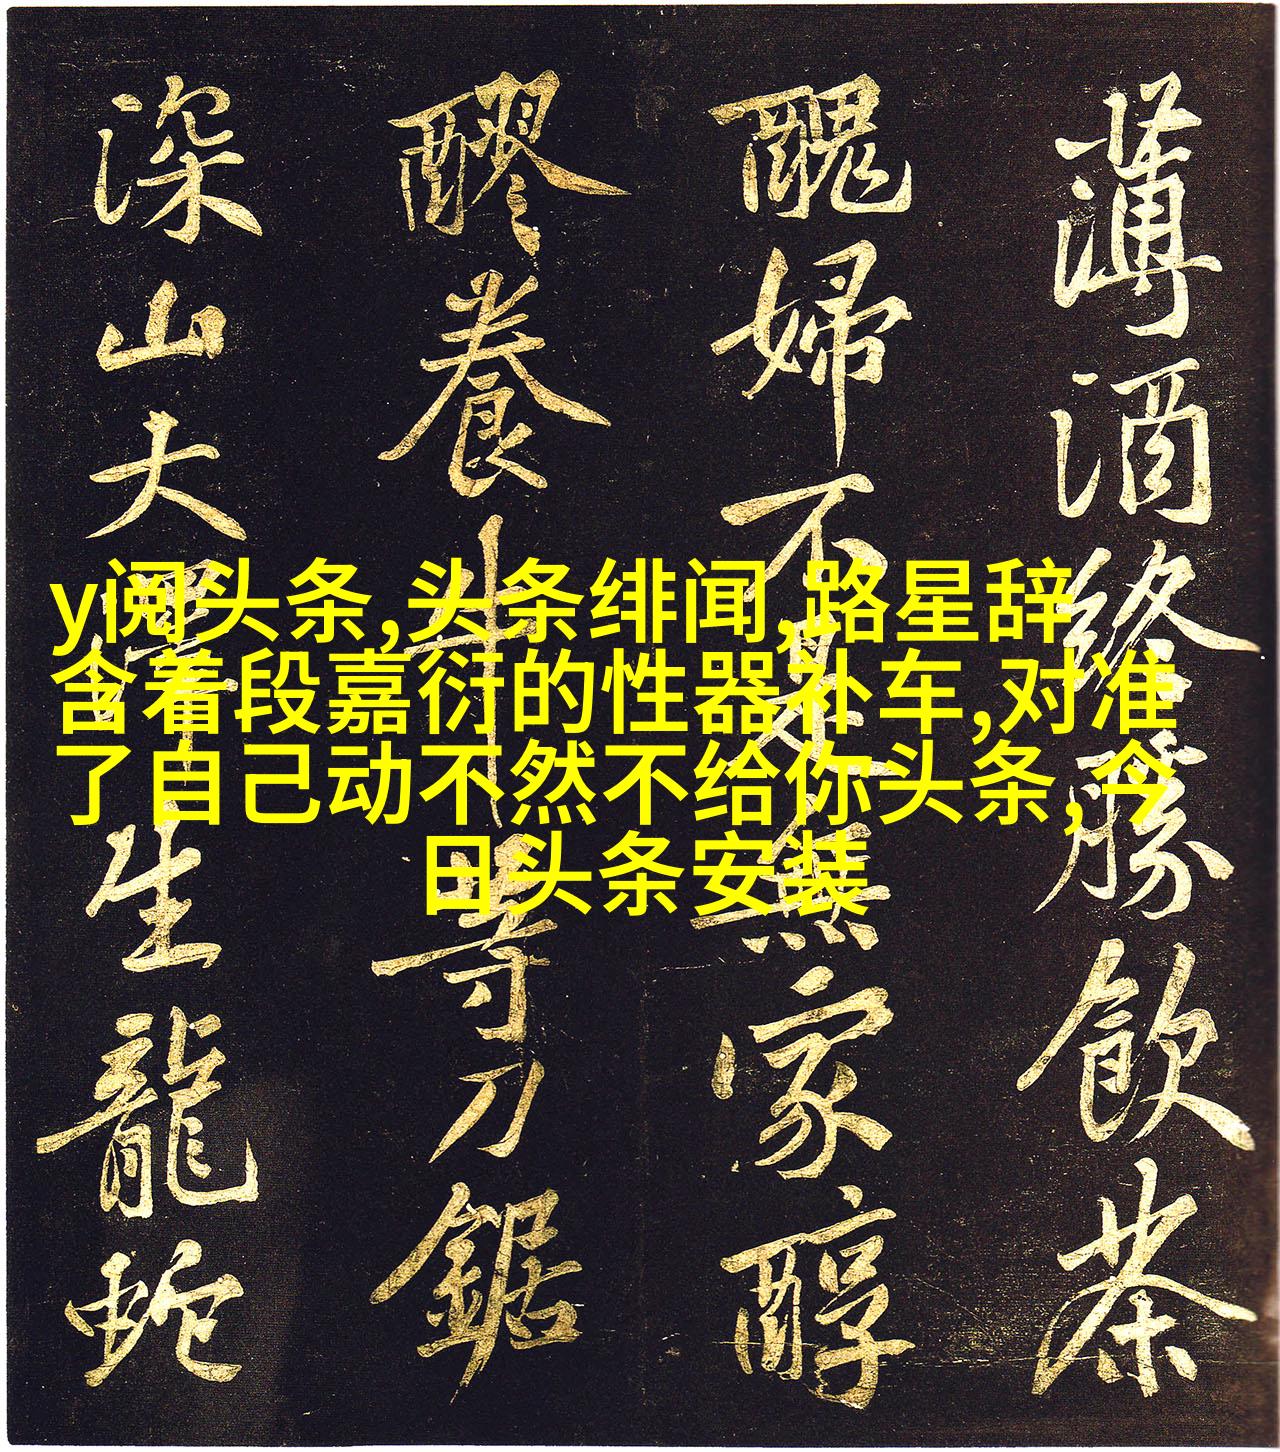 薄酒終勝飲茶
醜婦不是無家醇
醪養牛等刀鋸
深山大澤生龍蛇
y阅头条,头条绯闻,路星辞
含着段嘉衍的性器补车,对准
了自己动不然不给你头条,今
日头条安装